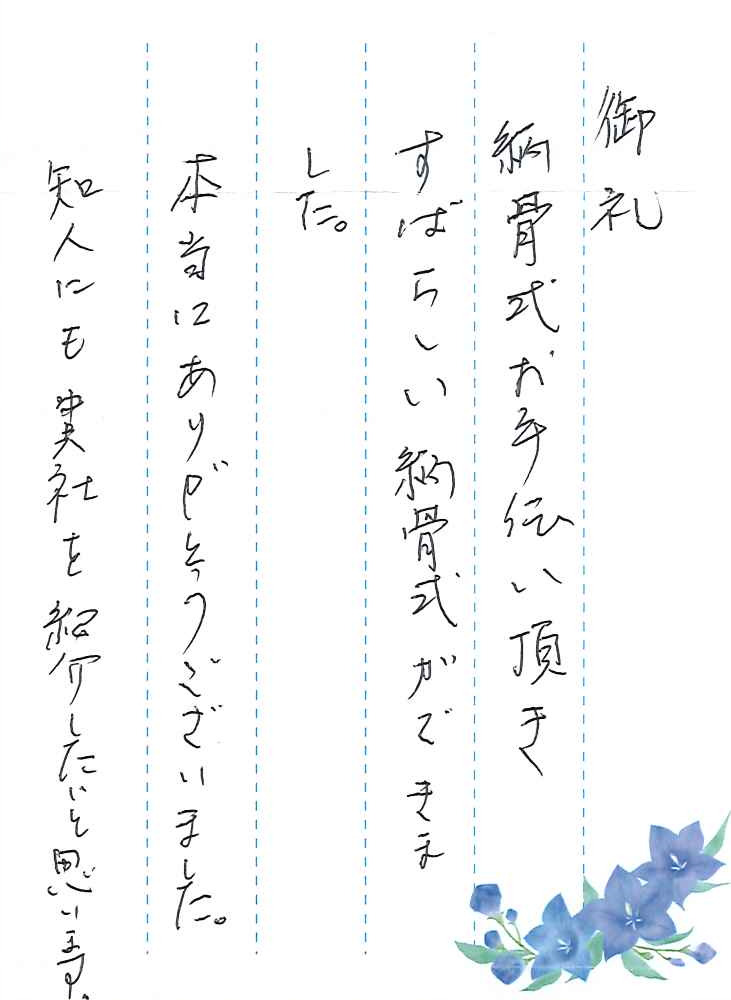 御礼
納骨式お手伝い頂き
すばらしい納骨式ができま
した。
本当にありがとうございました。
知人にも貴社を紹介したいと思います。